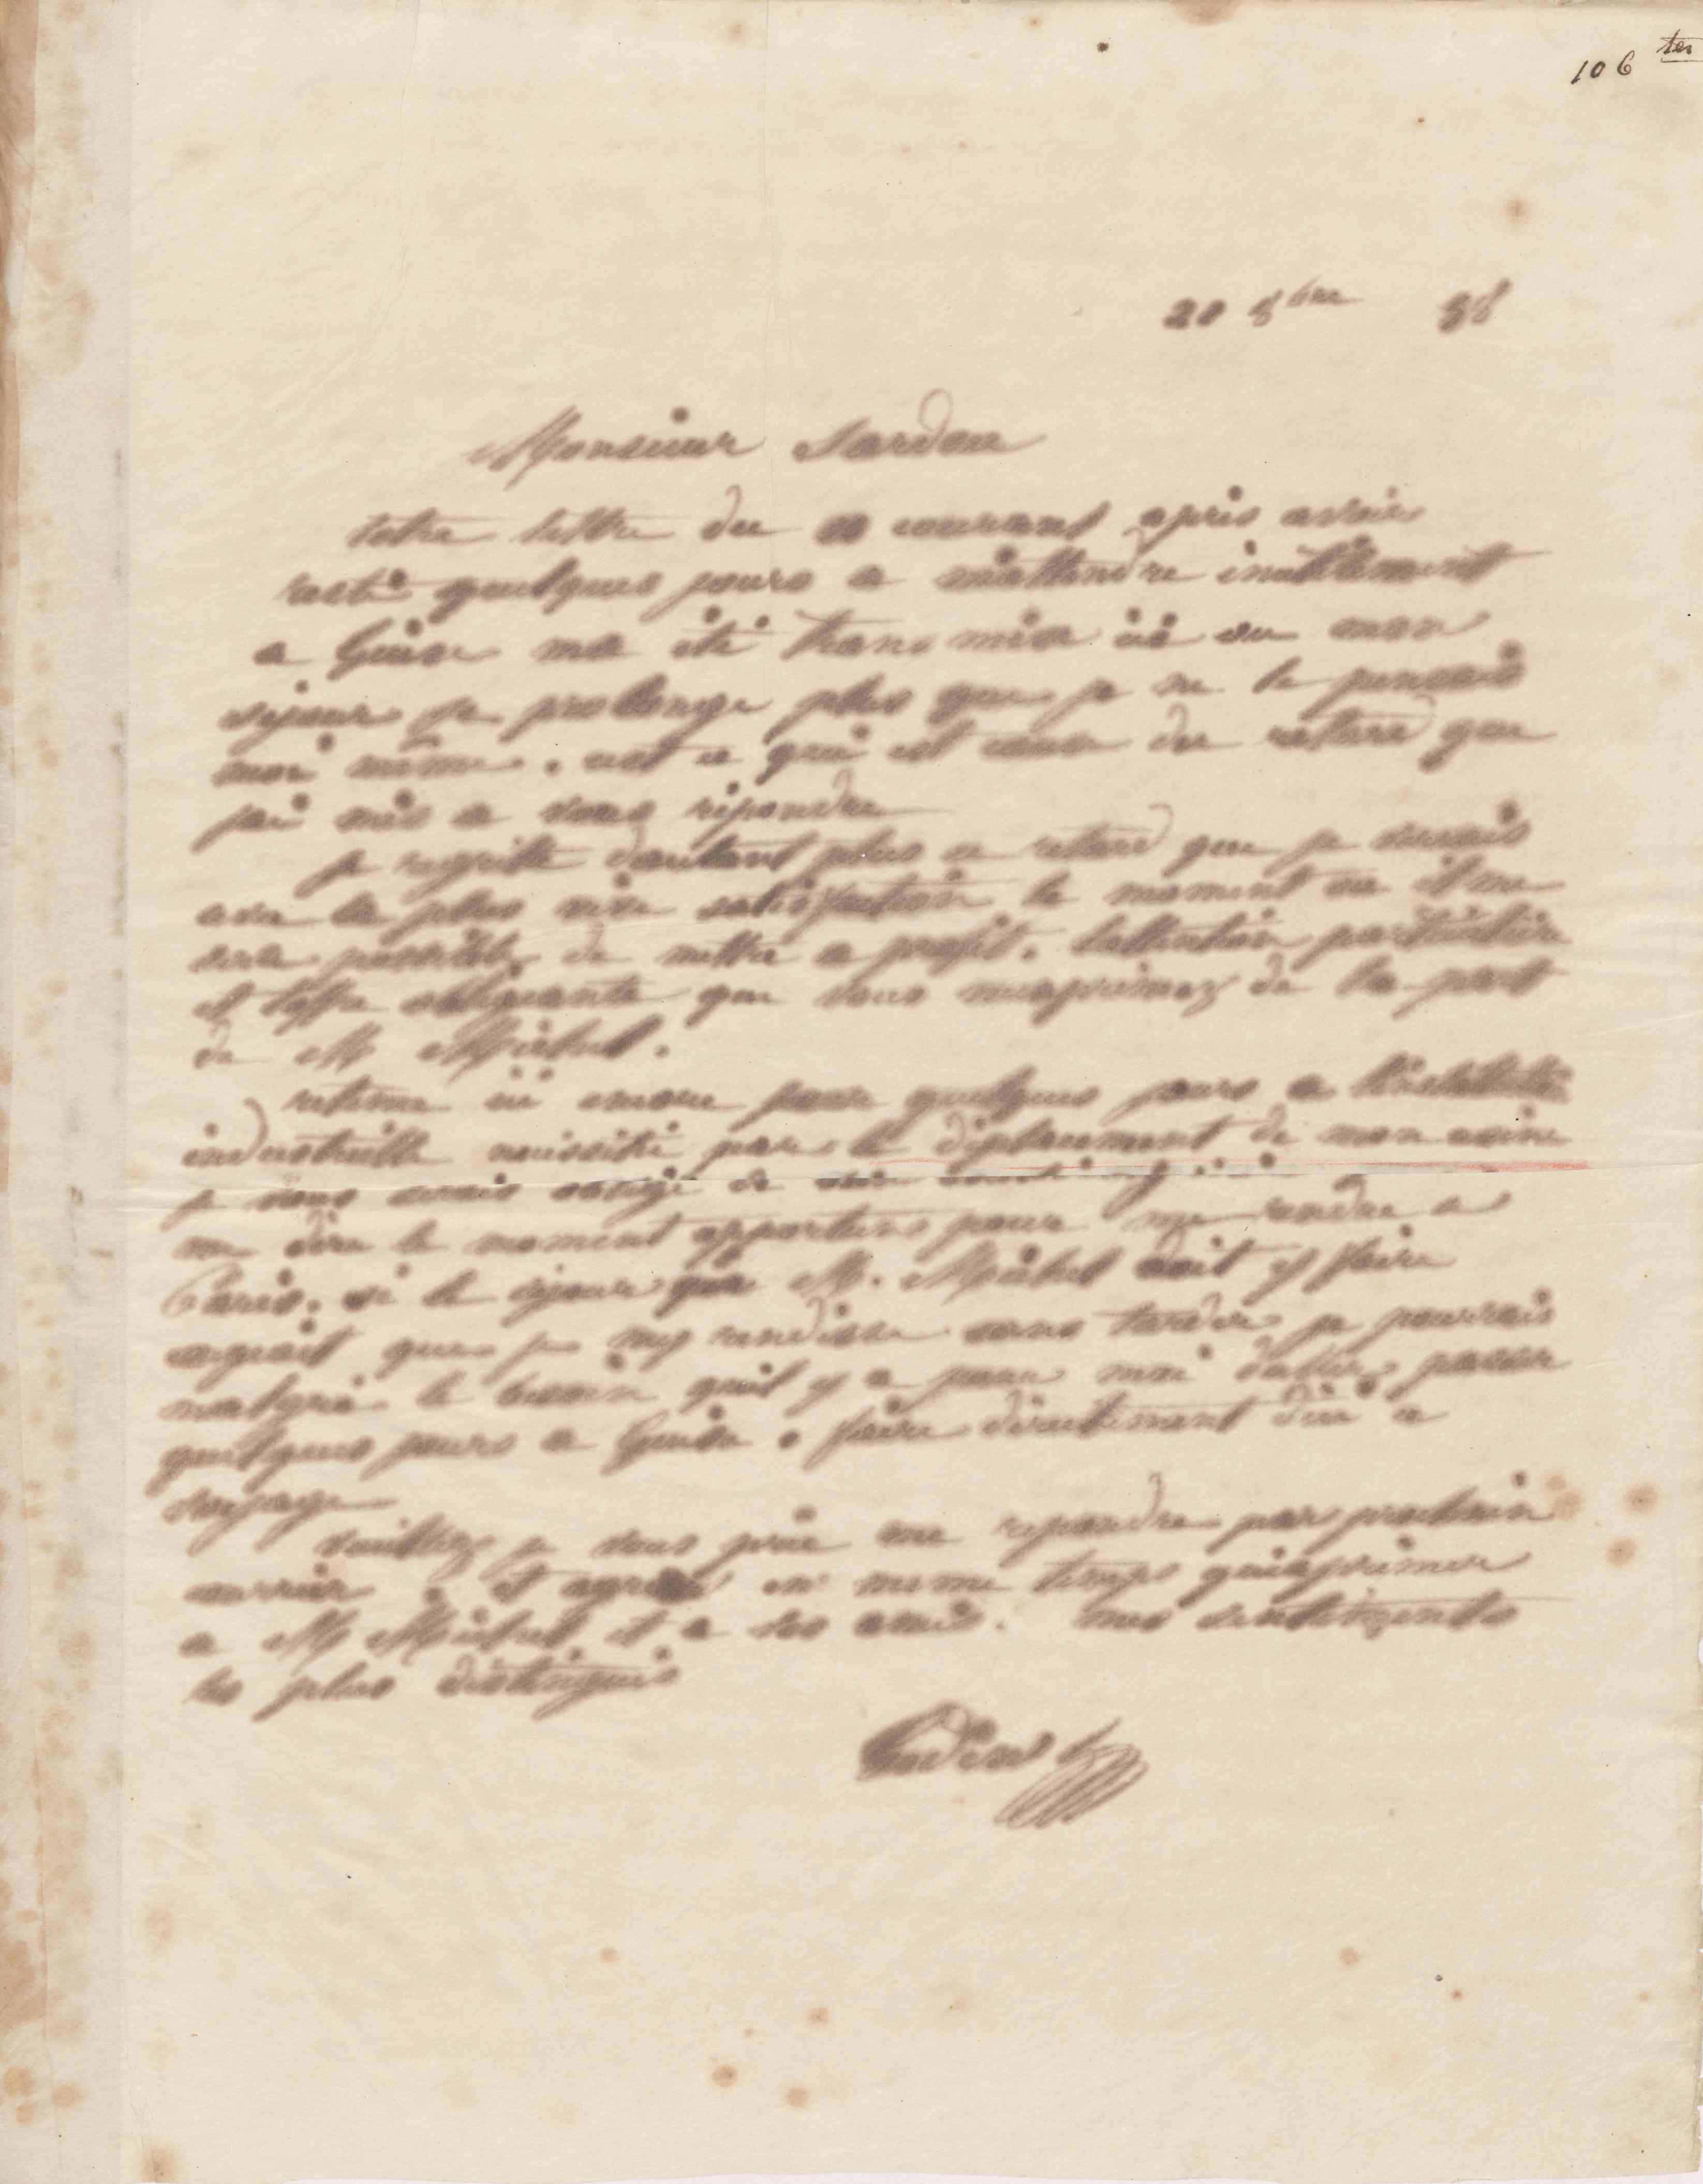 106 ter
20 8bre 58
Monsieur Sardou
votre lettre du courant après avoir
resté quelques jours a m'attendre inutilement
a Guise ma été transmise ici ou mon
séjour se prolonge plus que je ne le pensais
moi même. cest ce qui est cause du retard que
jai mis a vous répondre
je regrette dautant plus ce retard que je verrais
avec la plus vive satisfaction le moment ou il me
sera possible de mettre a profit. lattention particulière
et loffre obligeante que vous mexprimez de la part
de M
retenu ici encore pour quelques jours a
industrielle nécessité par le déplacement de mon usine
je vous serais obligé de
me dire le moment opportun pour me rendre a
Paris. si le séjour que M. doit y faire
exigeait que je my rendisse sans tarder je pourrais
malgré le besoin quil y a pour moi daller passer
quelques jours a Guise faire directement dici ce
voyage
veuillez je vous prie me repondre par prochain
courrier et agréer en meme temps quexprimer
a M et a ses amis. mes sentiments
les plus distingués
Godin